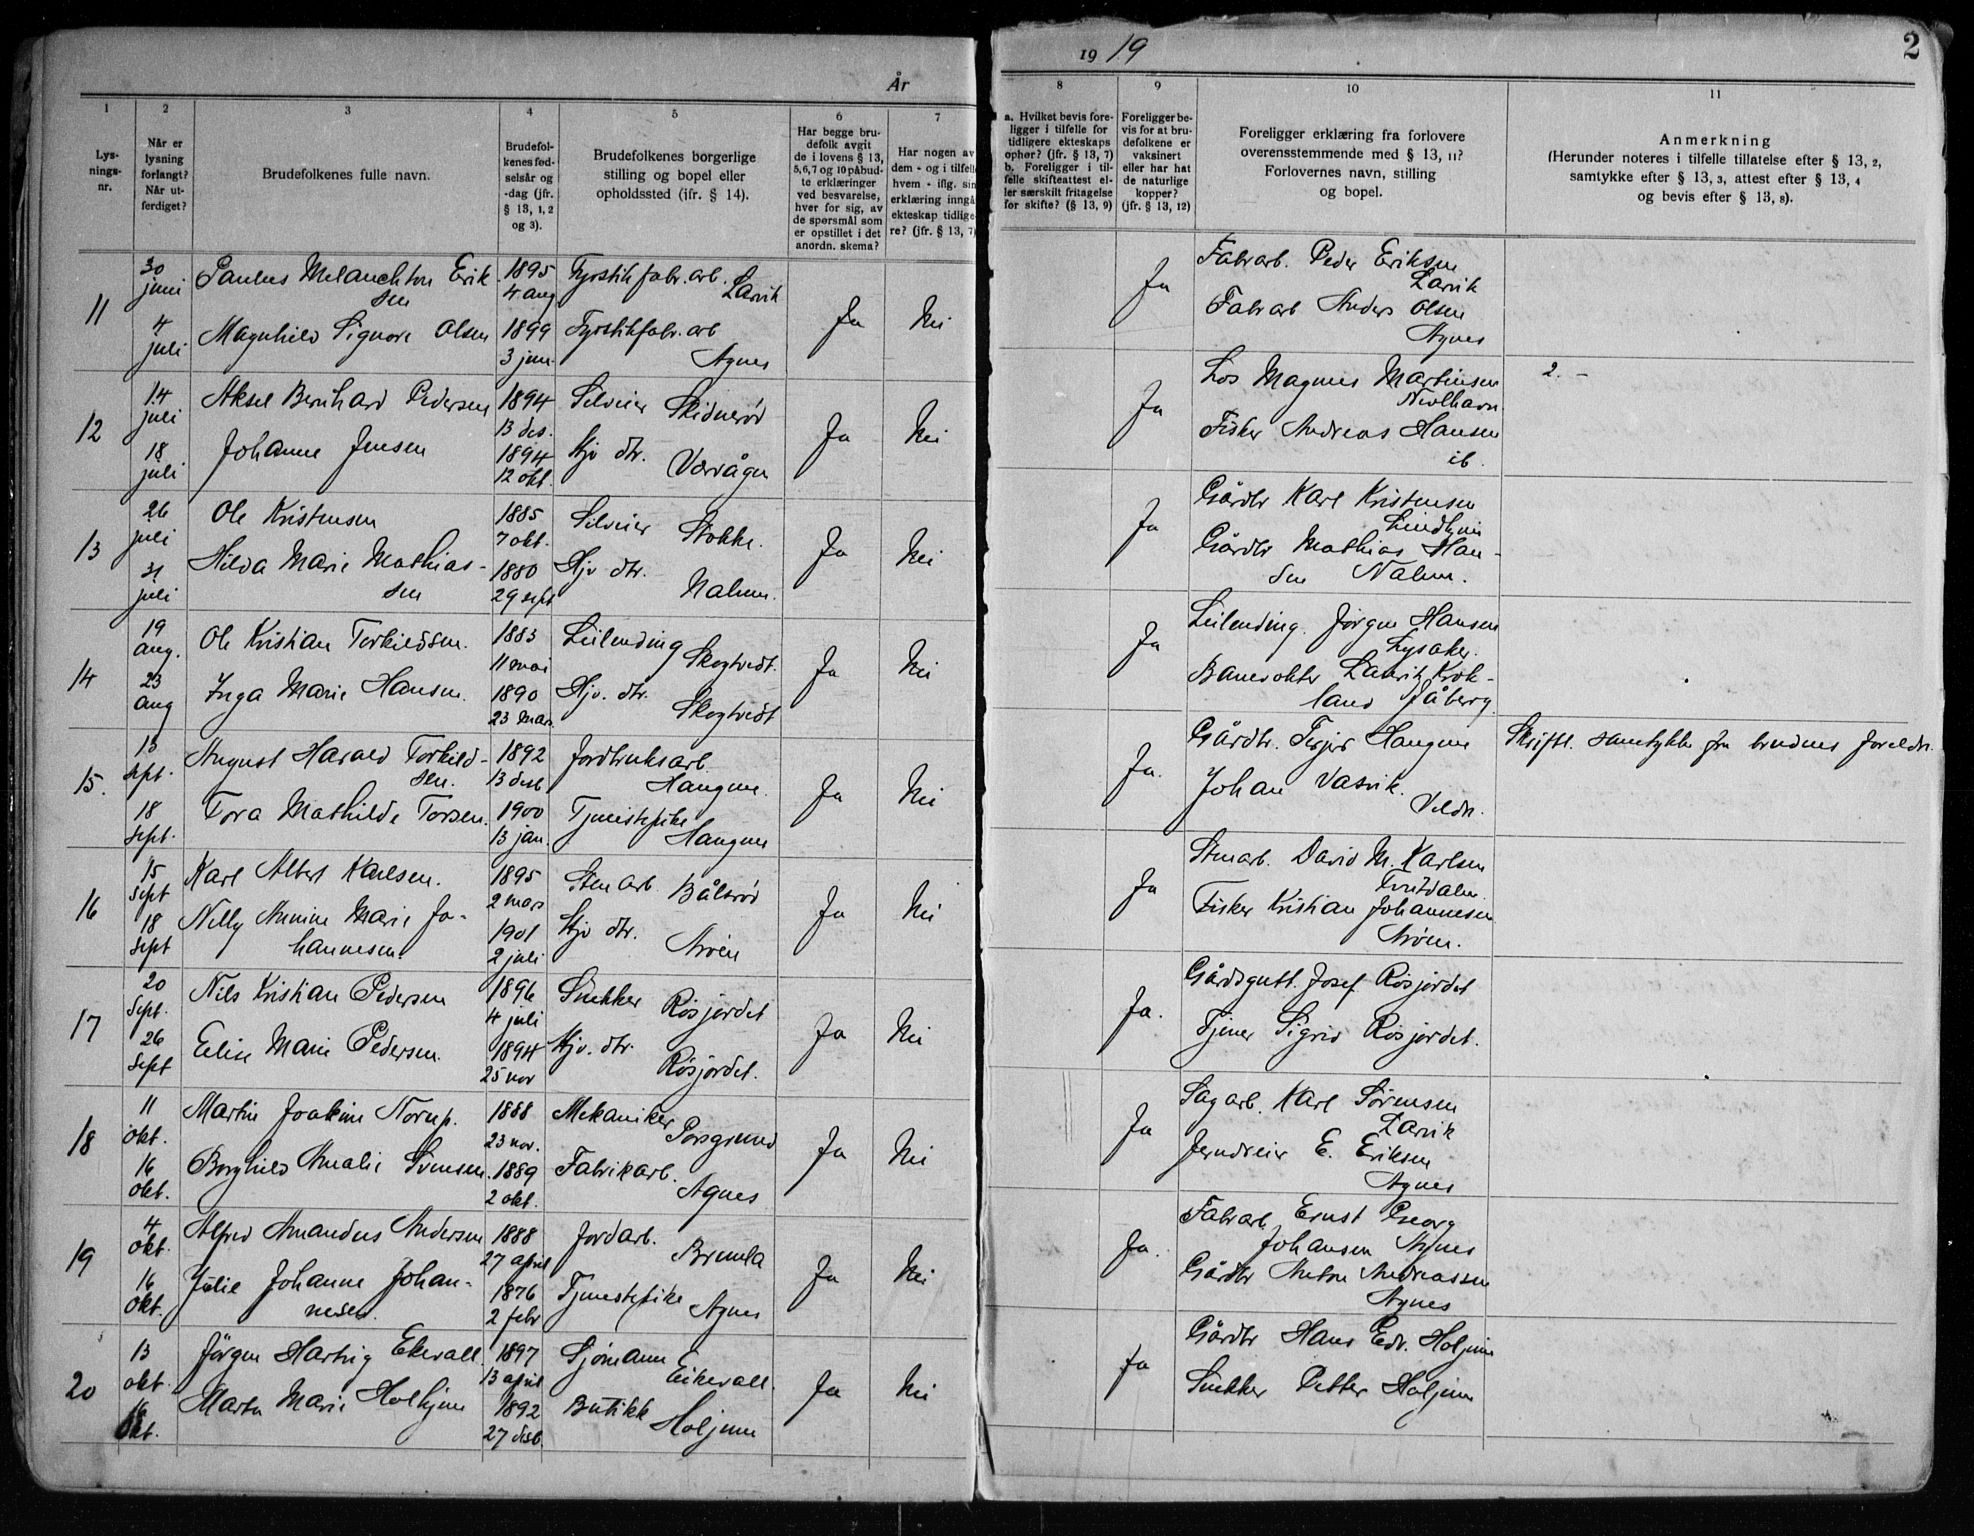 År
19 19
2
1
2
3
4
5
6
7
8
9
10
11
Lys-
nings-
nr.
Når er
lysning
forlangt?
Når ut-
ferdiget?
Brudefolkenes fulle navn.
Brudefol-
kenes fød-
selsår og
-dag (jfr.
§ 13, 1, 2
og 3).
Brudefolkenes borgerlige
stilling og bopel eller
opholdssted (jfr. § 14).
Har begge bru-
defolk avgit
de i lovens § 13,
5, 6, 7 og 10 påbud-
te erklæringer
ved besvarelse,
hver for sig, av
de spørsmål som
er opstillet i det
anordn. skema?
Har nogen av
dem - og i tilfelle
hvem - iflg. sin
erklæring inngå
ekteskap tidlige-
re? (jfr. § 13, 7)
a. Hvilket bevis fore-
ligger i tilfelle for
tidligere ekteskaps
ophør? (jfr. § 13, 7)
b. Foreligger i til-
felle skifteattest el-
ler særskilt fritagelse
for skifte? (§ 13, 9)
Foreligger be-
vis for at bru-
defolkene er
vaksinert
eller har hat
de naturlige
kopper?
(jfr. § 13, 12)
Foreligger erklæring fra forlovere
overensstemmende med § 13, 11?
Forlovernes navn, stilling
og bopel.
Anmerkning
(Herunder noteres i tilfelle tillatelse efter § 13, 2,
samtykke efter § 13, 3, attest efter § 13, 4
og bevis efter § 13, 8).
11
30
juni
4
juli
Paulus Melanchton Erik
sen
Magnhild Signore Olsen
1895
4 aug
1899
3 juni
Fyrstikfabr.arb.
Larvik
Fyrstikfabr.arb
Agnes
Ja
Nei
Ja
Fabrarb. Peder Eriksen
Larvik
Fabrarb Anders Olsen
Agnes
12
14
juli
18
juli
Aksel Bernhard Pedersen
Johanne Jensen
1894
13 des.
1894
12 okt.
Selveier Skidnerød
Hjv dtr. Værvågen
Ja
Nei
Ja
Los Magnus Martinsen
Nevlhavn
Fisker Andreas Hansen
ib.
2. -
13
26
juli
31
juli
Ole Kristensen
Hilda Marie Mathias-
sen
1885
7 okt.
1880
29 sept
Selveier Stokke.
Hjv dtr.
Nalum.
Ja
Nei
Ja
Gårdbr Karl Kristensen
Lindhjem
Gårdbr Mathias Han-
sen Nalum.
14
19
aug.
23
aug
Ole Kristian Torkildsen.
Inga Marie Hansen.
1883
11 mai
1890
23 mars
Leilending
Skogtvedt.
Hjv. dtr.
Skogtvedt
Ja
Nei
Ja
Leilending. Jørgen Hansen
Lysaker.
Banevokter Laurits Krok-
land Jåberg.
15.
13
sept.
18
sept.
August Harald Torkild-
sen.
Tora Mathilde Torsen.
1892
13 desb
1900
13 jan.
Jordbruksarb.
Haugene.
Tjenestepike
Haugene
Ja
Nei
Ja.
Gårdbr. Terjer Haugene
Johan Vasvik.
Velds.
Skriftl. samtykke fra brudens foreldr.
16
15
sept
18
sept
Karl Albert Karlsen.
Nelly Annine Marie Jo-
hannesen.
1895
2 mars
1901
2 juli
Stenarb. Bålsrød
Hjv dtr.
Arøen
Ja
Nei
Ja
Stenarb. David M. Karlsen
Tvetdalen
Fisker Kristian Johannesen
Arøen.
17
20
Sept.
26
Sept
Nils Kristian Pedersen
Elise Marie Pedersen.
1896
4 juli
1894
25 nov
Snekker Røsjordet
Hjv. dtr.
Røsjordet.
Ja
Nei
Ja.
Gårdsgutt. Josef Røsjordet
Tjener Sigrid Røsjordet.
18
11
okt.
16
okt.
Martin Joakim Norup.
Borghild Amalie Svensen.
1888
23 nov.
1889
2 okt.
Mekaniker
Porsgrund
Fabrikarb.
Agnes
Ja
Nei
Ja
Sagarb. Karl Sørensen
Larvik
Jerndreier E. Eriksen
Agnes
19
4
okt.
16
okt.
Alfred Amandus Andersen
Julie Johanne Johan-
nesen.
1888
27 april
1876
2 febr
Jordarb.
Brunla
Tjenestepike
Agnes
Ja
Nei
Ja.
Fabrarb. Ernst Georg
Johansen Agnes
Gårdbr Anton Andreassen
Agnes
20
13
okt.
16
okt.
Jørgen Hartvig Ekevall.
Marta Marie Holhjem
1897
13 april
1892
27 desb.
Sjømann
Eikevall.
Butikk
Holjem
Ja
Nei
Ja
Gårdbr Hans Edv. Holjem
Snekker Petter Holjem